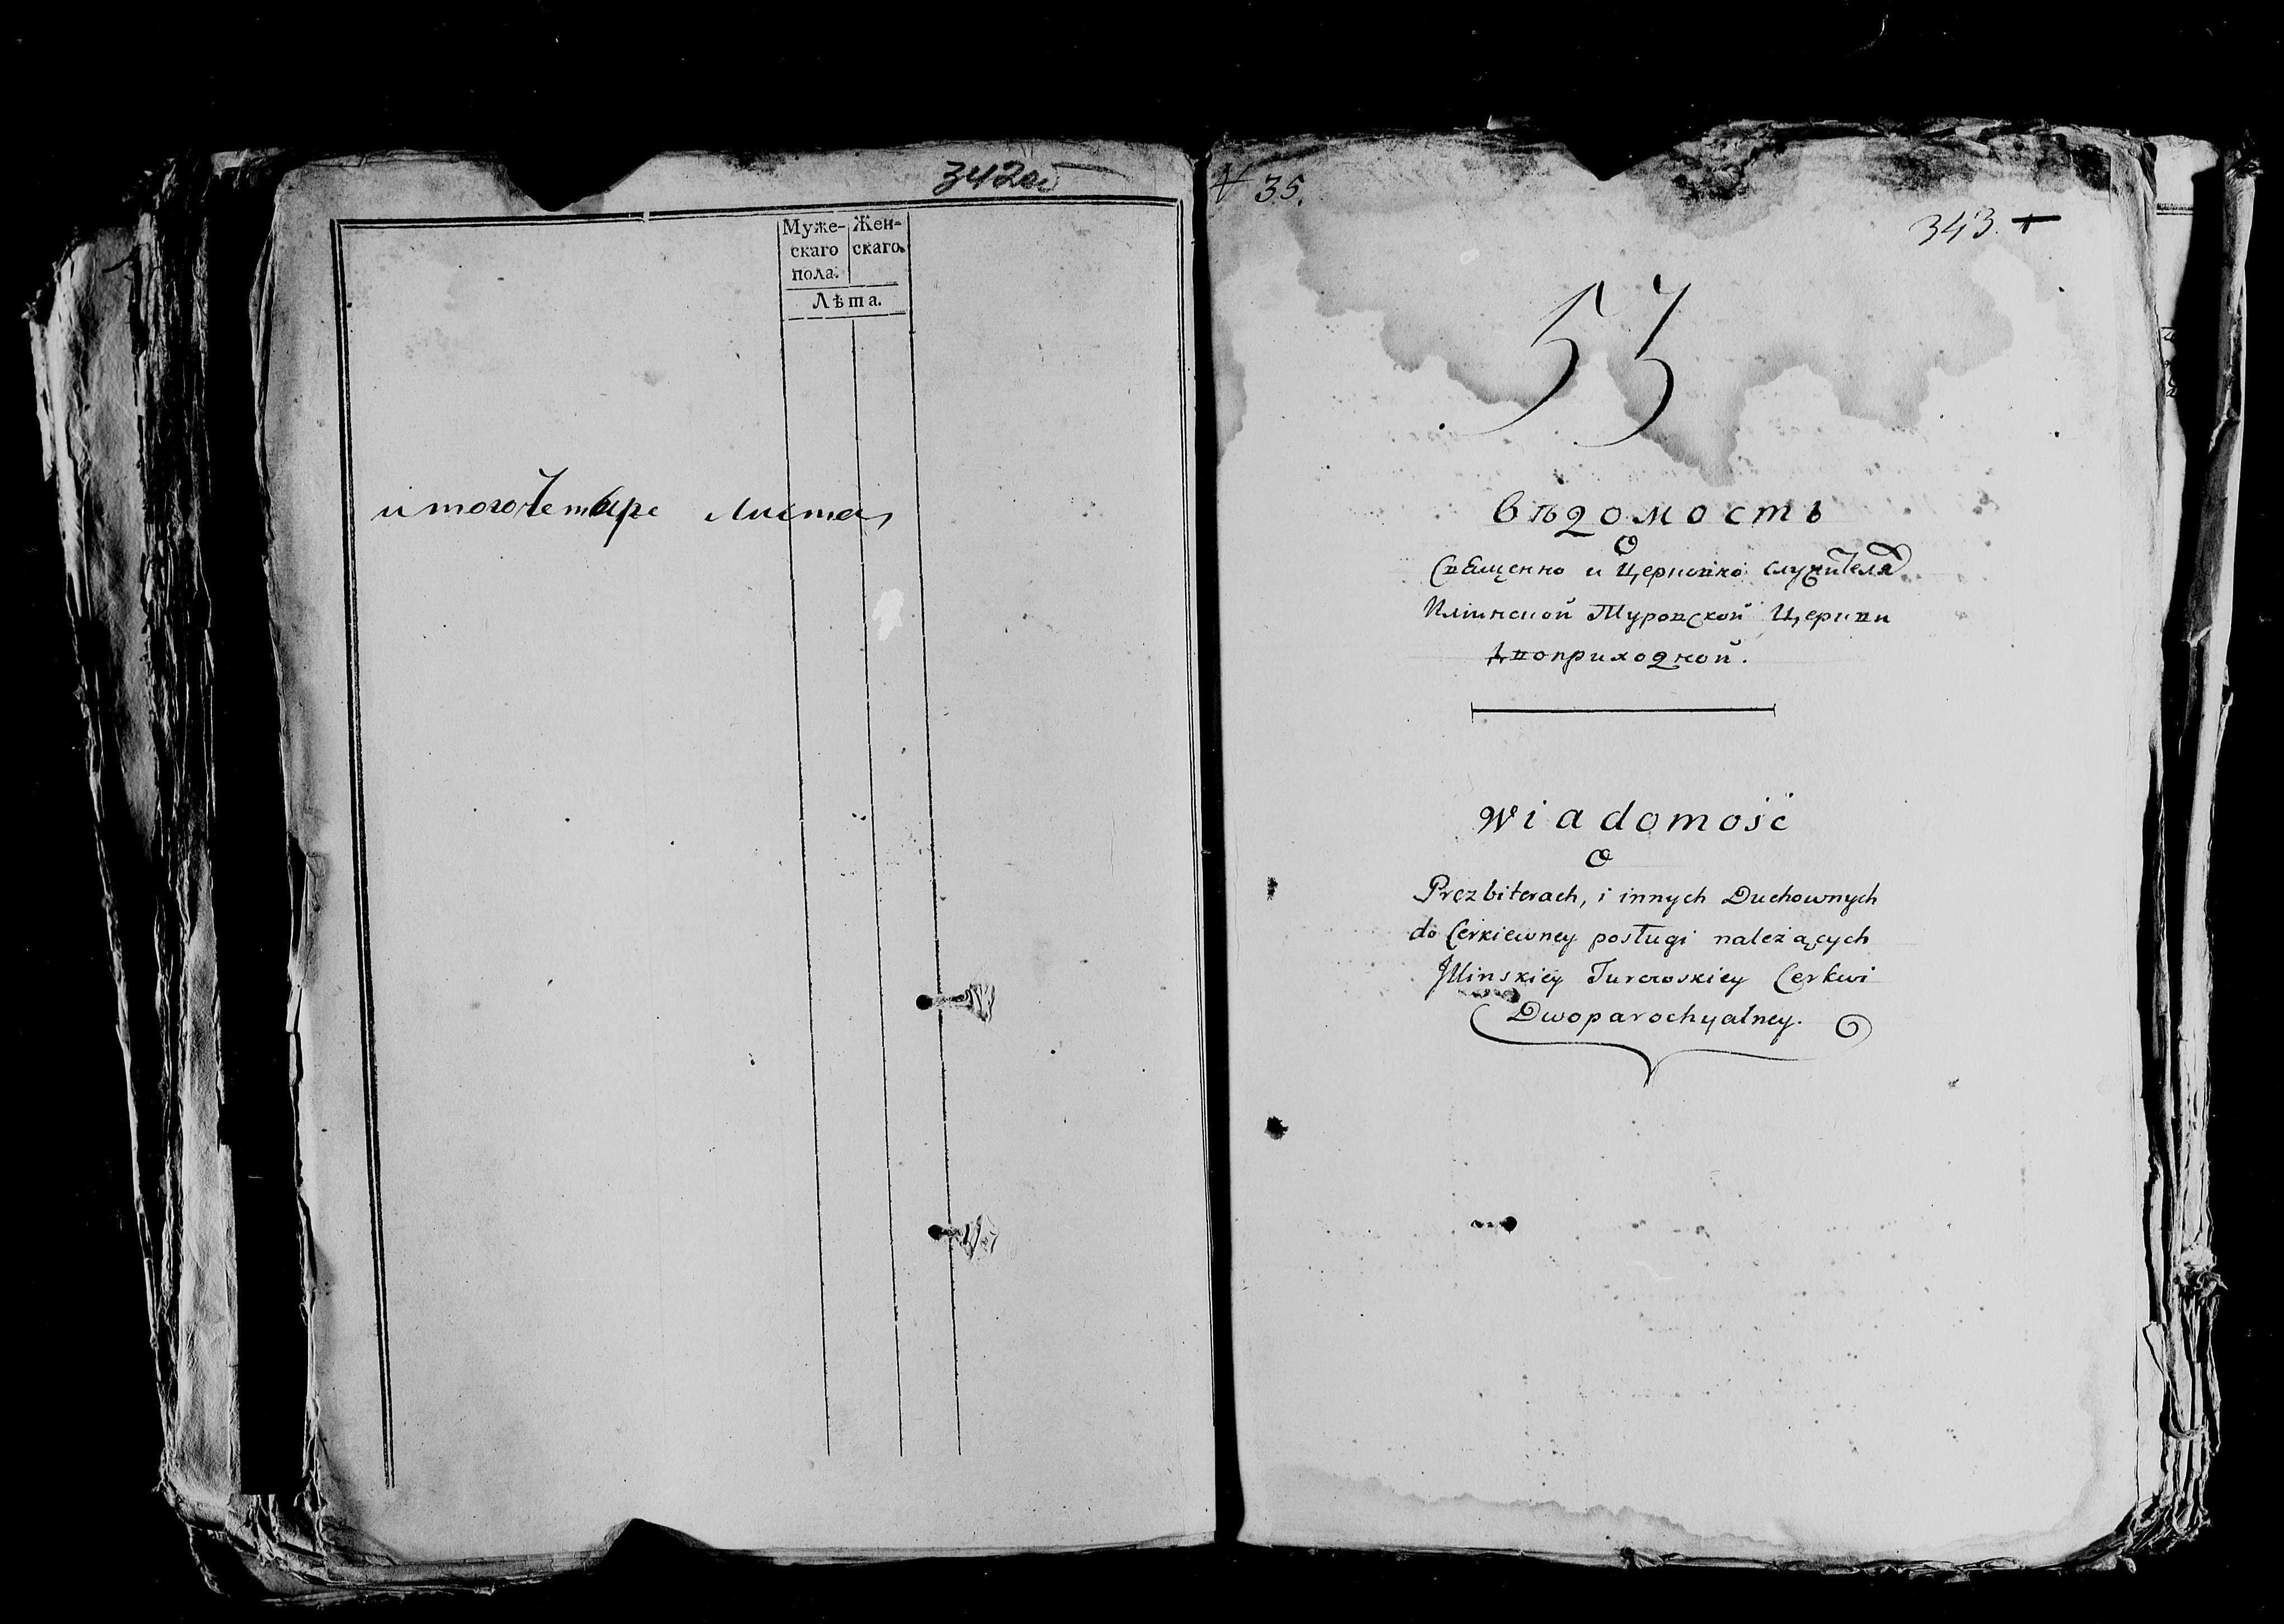 342об
Муже- Жен-
скаго скаго.
пола.
Лѣта.
итого Четыре листа
35.
343.
53
Вѣдомость
О
Священно и Церковно служителях
Илiинской Туровской Церкви
Двоприходной.
Wiadomość
O
Prezbiterach, i innych Duchownych
do Cerkiewney posługi należących
Illinskiey Turowskiey Cerkwi
Dwoparochyalney.